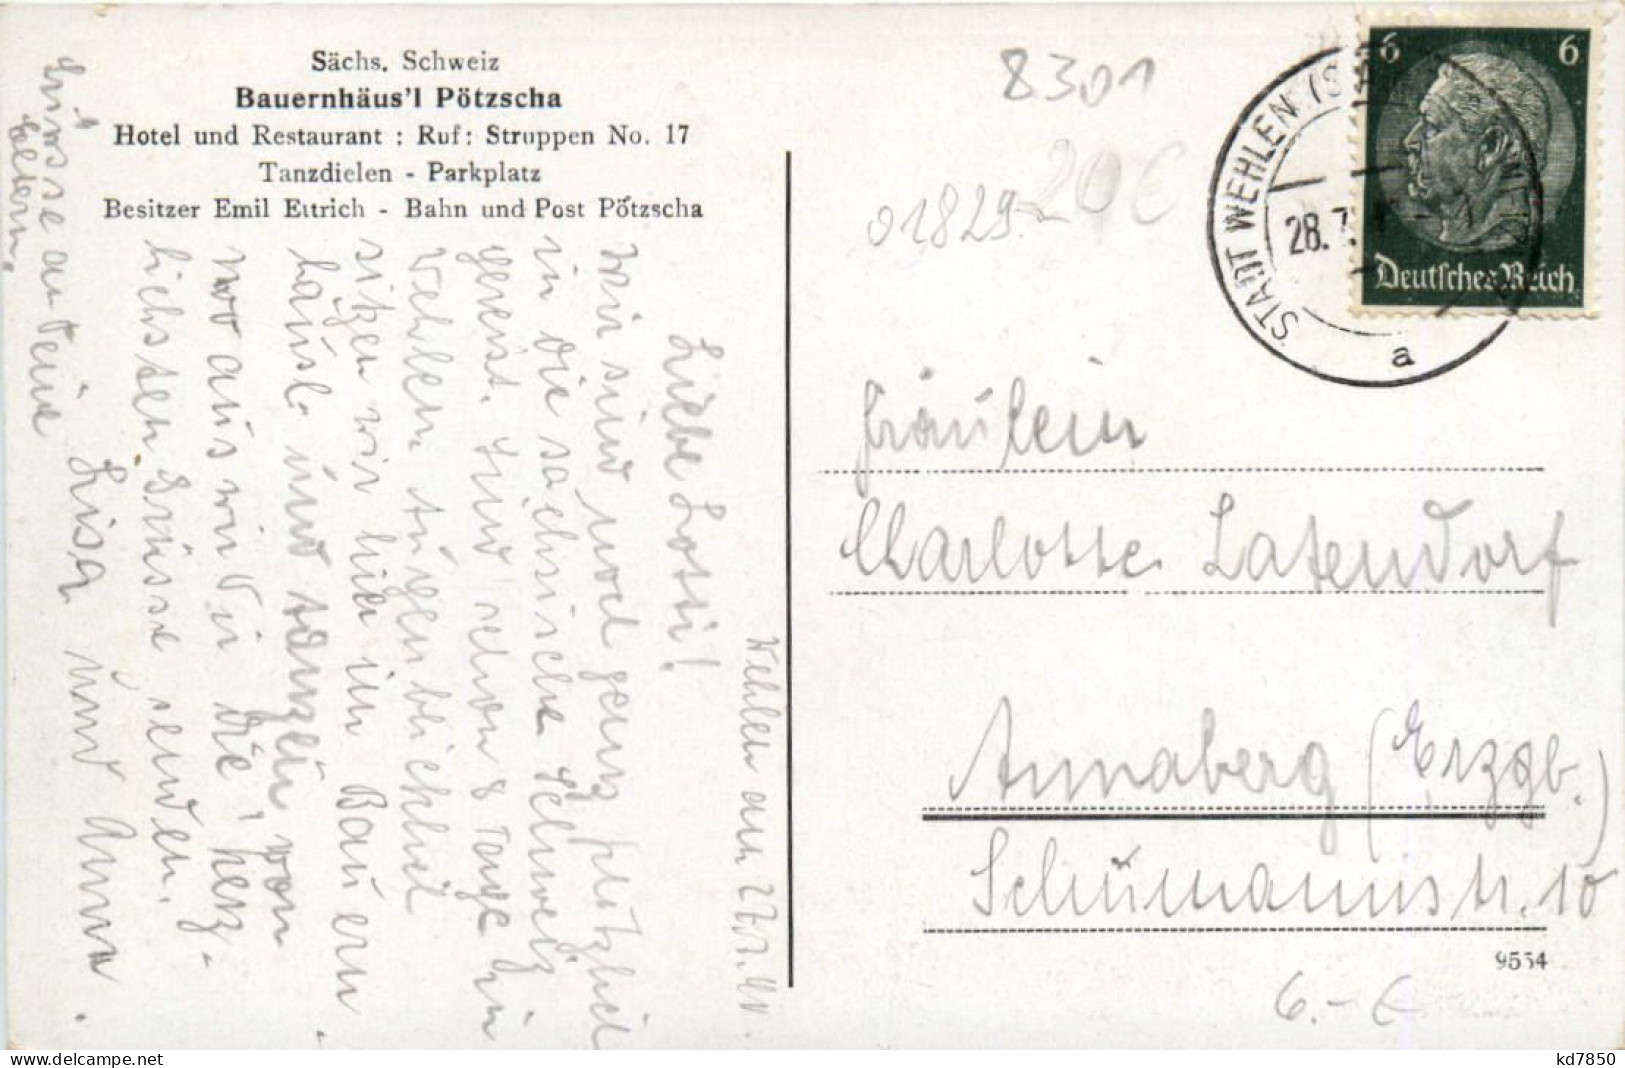 Sächs. Schweiz
Bauernhäus'l Pötzscha
Hotel und Restaurant : Ruf: Struppen No. 17
Tanzdielen - Parkplatz
Besitzer Emil Ettrich - Bahn und Post Pötzscha
Wehlen am 27.7.
Liebe Lotti!
Wir sind und ganz plötzlich
in die sächsische Schweiz
gereist. Sind schon 8 Tage in
Wehlen. Augenblicklich
sitzen wir hier im Bauern
häusl. und tanzen, von
wo aus wir Dir die herz-
lichsten Grüsse senden.
Lisa und Anna.
Grüsse an Deine
Eltern.
8301
20 €
01829
STADT WEHLEN
28.7.
a
6 6
Deutsches Reich
Fräulein
Charlotte Latendorf
Annaberg (Erzgb.)
Schumannstr. 10
9554
6.- €
delcampe.net
kd7850